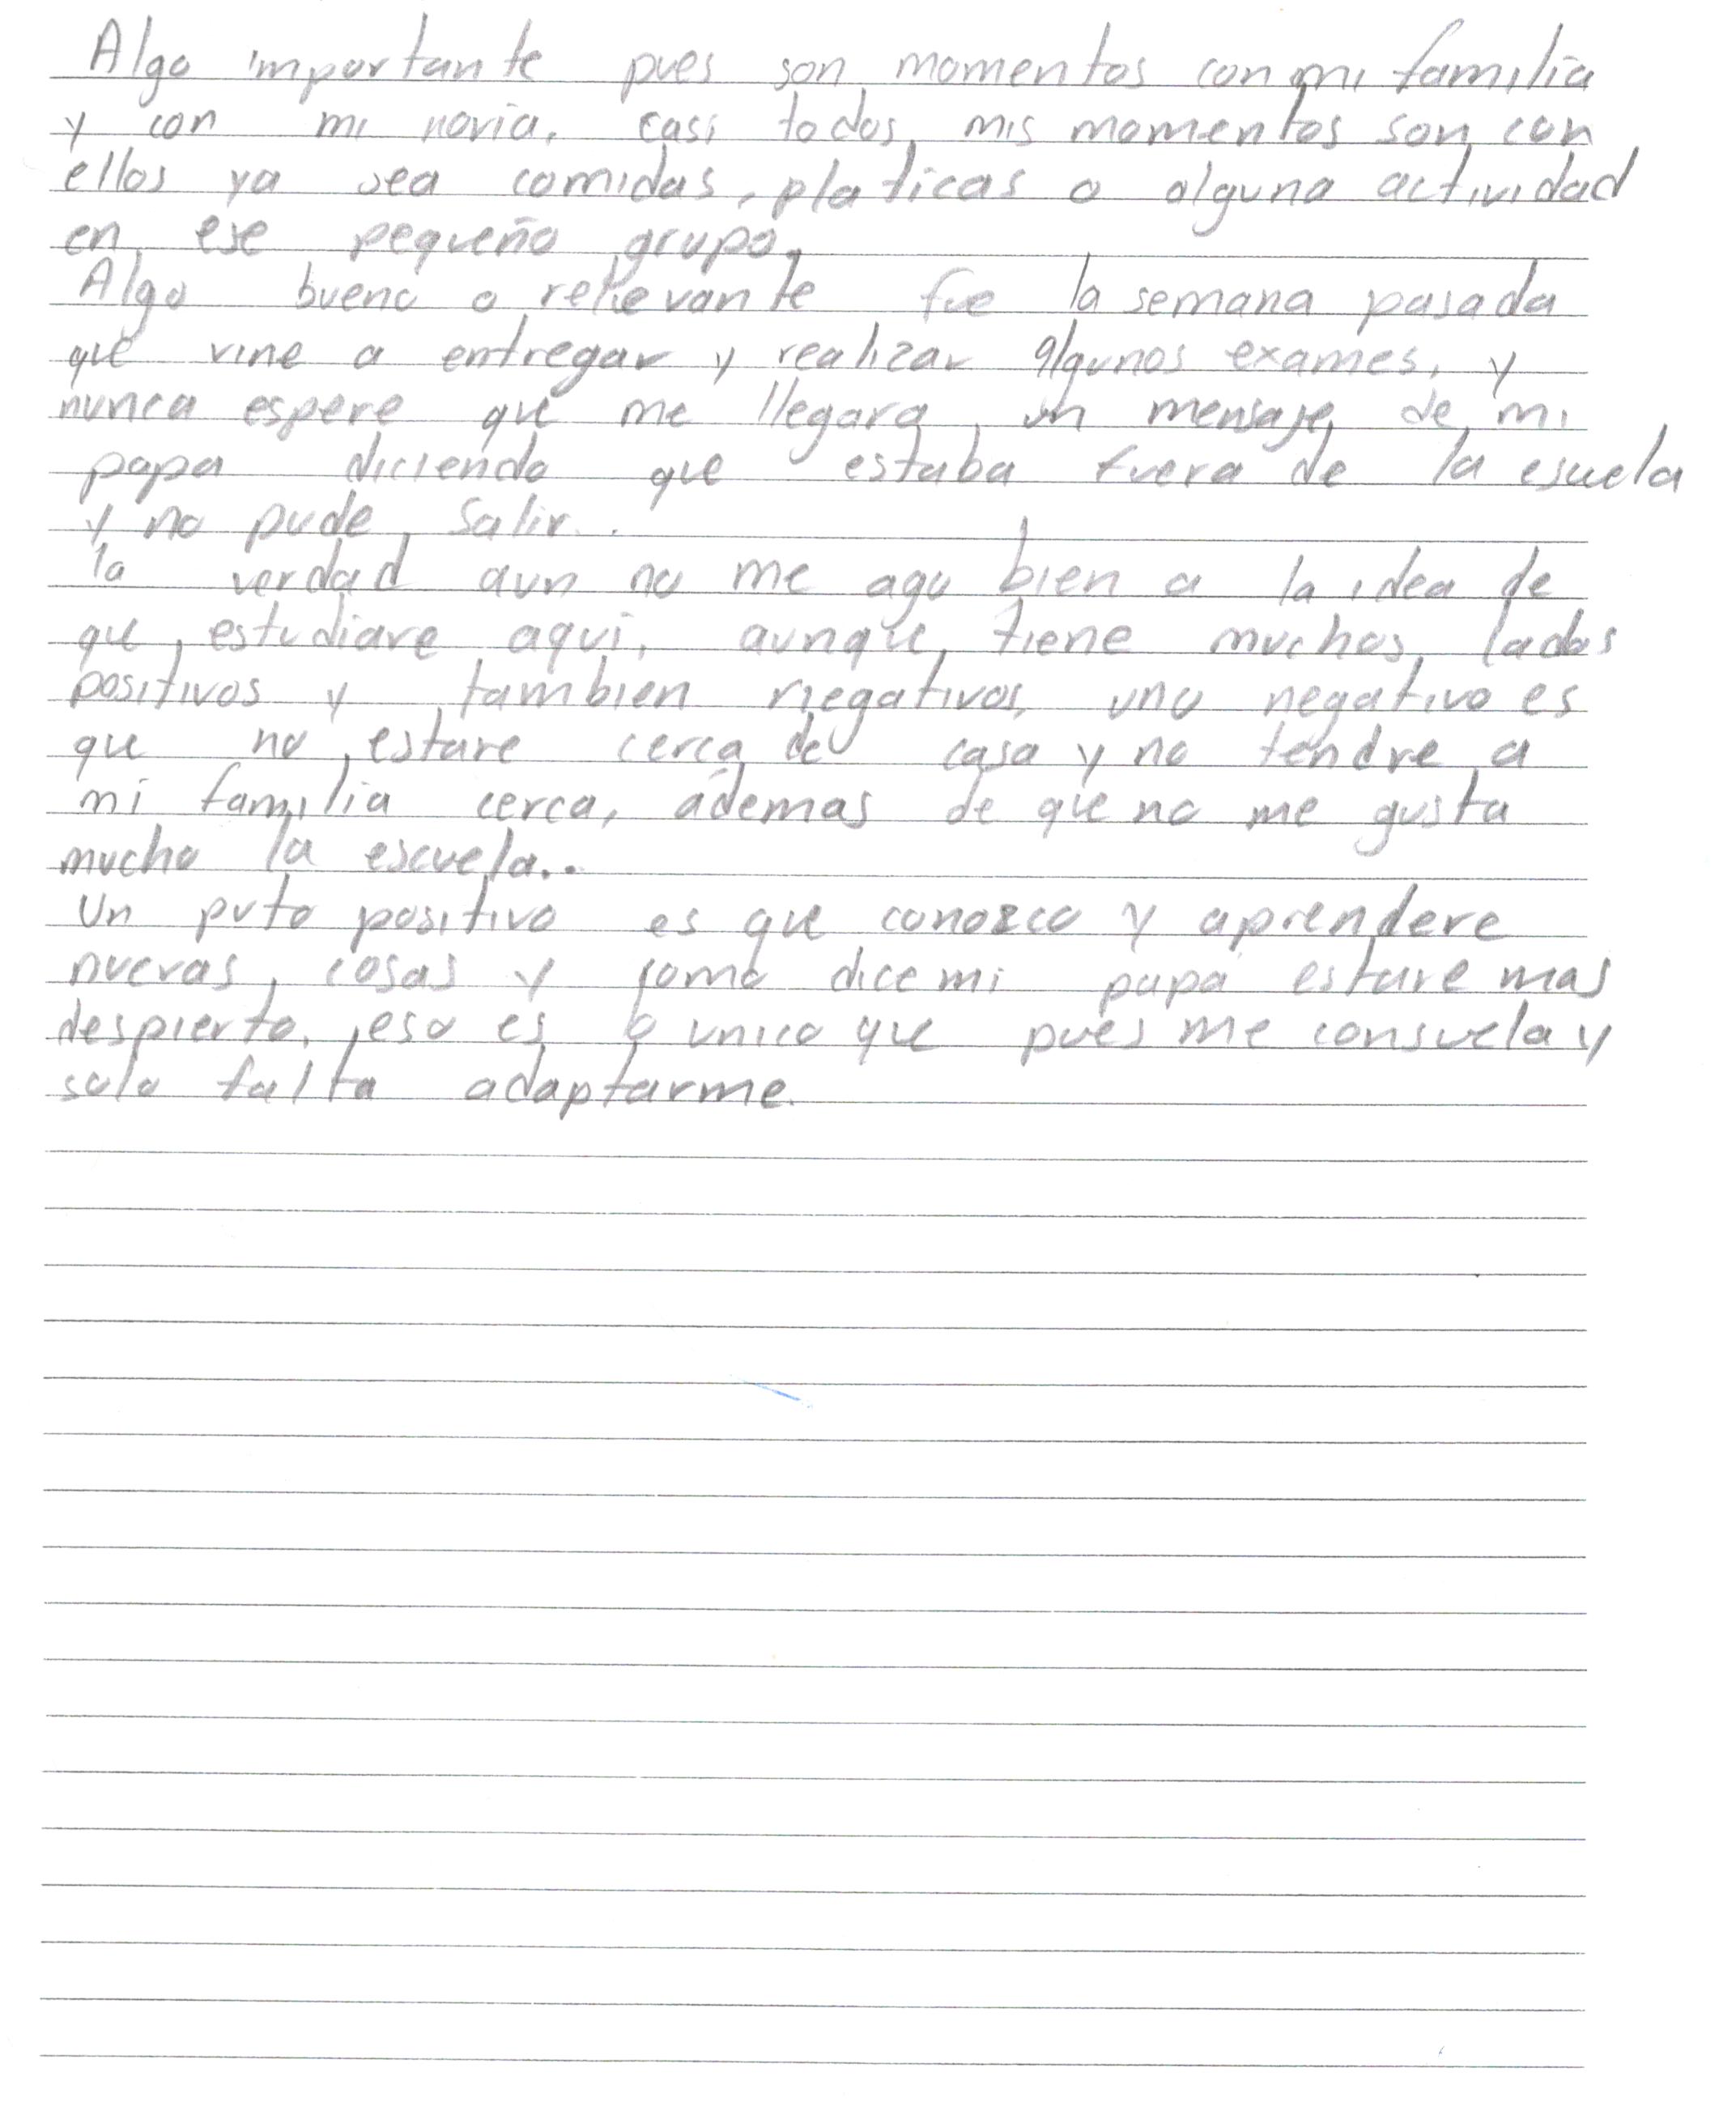 Algo importante pues son momentos con mi familia
y con mi novia. casi todos mis momentos son con
ellos ya sea comidas, platicas o alguna actividad
en ese pequeño grupo.
Algo bueno o relevante fue la semana pasada
que vine a entregar y realizar algunos exames, y
nunca espere que me llegara un mensaje de mi
papa diciendo que estaba fuera de la esuela
y no pude salir..
la verdad aun no me ago bien a la idea de
que estudiare aqui, aunque tiene muchos lados
positivos y tambien negativos, uno negativo es
que no estare cerca de casa y no tendre a
mi familia cerca, ademas de que no me gusta
mucho la escuela..
Un puto positivo es que conozco y aprendere
nuevas cosas y como dice mi papá estare mas
despierto, eso es lo unico que pues me consuela y
solo falta adaptarme.